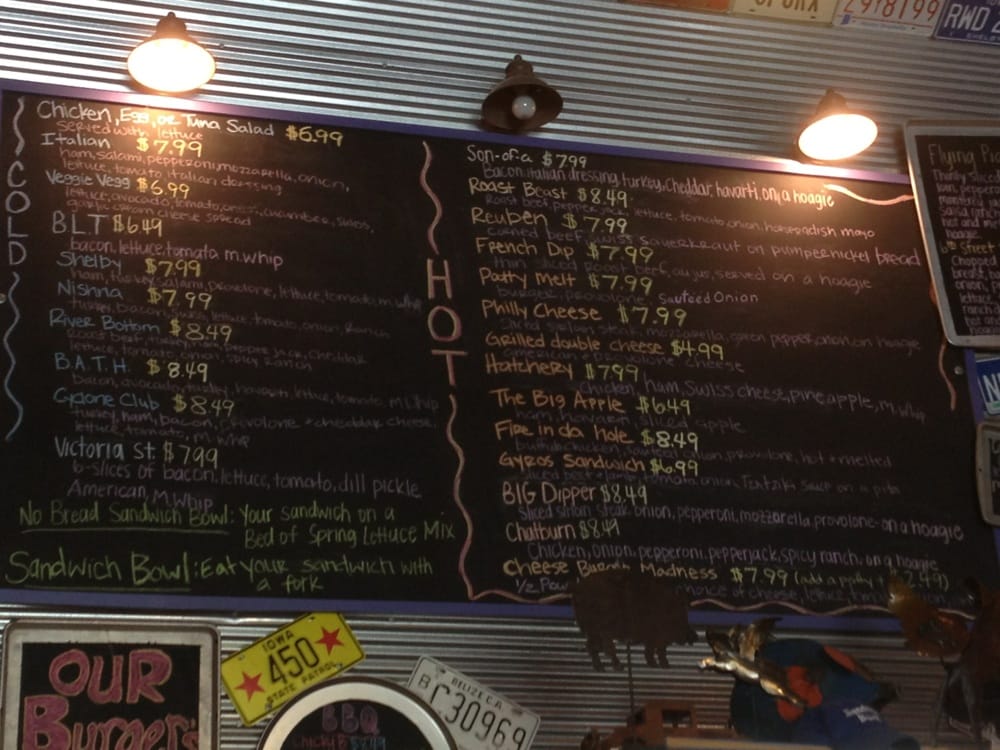 COLD
Chicken, Egg, or Tuna Salad $6.99
served with lettuce
Italian $7.99
ham, salami, pepperoni, mozzarella, onion,
lettuce, tomato, italian dressing
Veggie Vegg $6.99
lettuce, avocado, tomato, cucumber, swiss,
cream cheese spread
BLT $6.49
bacon, lettuce, tomato m.whip
Shelby $7.99
ham, turkey, salami, provolone, lettuce, tomato, m.whip
Nishna $7.99
turkey, bacon, swiss, lettuce, tomato, onion, Ranch
River Bottom $8.49
roast beef, turkey, pepper jack, cheddar
lettuce, tomato, onion, spicy Ranch
B.A.T.H. $8.49
bacon, avocado, turkey, havarti, lettuce, tomato, m.whip
Cyclone Club $8.49
turkey, ham, bacon, provolone + cheddar cheese,
lettuce, tomato, m.whip
Victoria St. $7.99
6-slices of bacon, lettuce, tomato, dill pickle
American, M.Whip
No Bread Sandwich Bowl: Your sandwich on a
Bed of Spring Lettuce Mix
Sandwich Bowl: Eat your sandwich with
a fork
HOT
Son-of-a $7.99
Bacon, italian dressing, turkey, cheddar, havarti on a hoagie
Roast Beast $8.49
Roast beef, pepper jack, lettuce, tomato, onion, horseradish mayo
Reuben $7.99
corned beef, swiss, sauerkraut on pumpernickel bread
French Dip $7.99
thin sliced Roast beef, au jus, served on a hoagie
Patty melt $7.99
burger, provolone, sauteed onion
Philly Cheese $7.99
sliced sirloin steak, mozzarella, green pepper, onion, on hoagie
Grilled double cheese $4.99
american + provolone cheese
Hatchery $7.99
chicken, ham, swiss cheese, pineapple, m.whip
The Big Apple $6.49
ham, sliced apple
Fire in da hole $8.49
chicken, onion, provolone, hot + melted
Gyros Sandwich $6.99
sliced beef + lamb, tomato, onion, Tzatziki sauce on a pita
BIG Dipper $8.49
Sliced sirloin steak, onion, pepperoni, mozzarella, provolone - on a hoagie
Chatburn $8.49
Chicken, onion, pepperoni, pepperjack, spicy ranch, on a hoagie
Cheese Madness $7.99 (add a patty + $2.49)
1/2 choice of cheese, lettuce
Flying
Thinly sliced
Street
Chopped
29Y8199
RWD
OUR
Burgers
IOWA
450
STATE PATROL
BELIZE C.A.
B C30969
BBQ